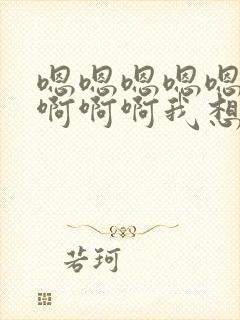 嗯嗯嗯嗯嗯
啊啊啊我想
若珂